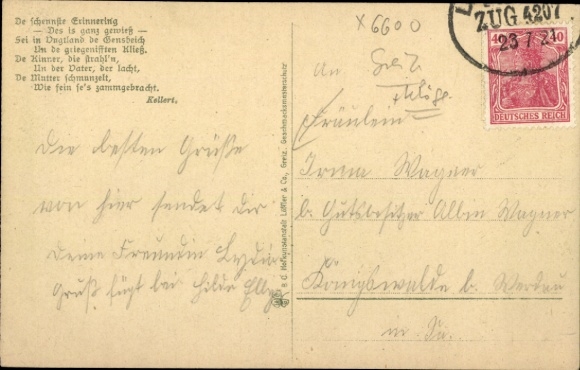 De schennste Erinnering
— Des is ganz gewieß —
Sei in Vugtland de Gensbeich
Un de griegenifften Kließ.
De Kinner, die strahl'n,
Un der Vater, der lacht,
De Mutter schmunzelt,
Wie fein se's zammgebracht.
Kellert.
Die besten Grüße
von hier sendet dir
Deine Freundin Lyddia
Gruß fügt bei Hilda
B. C. Hofkunstanstalt Löffler & Co., Greiz. Geschmacksmusterschutz
X 6600
ZUG 4207
23 7 21
40
DEUTSCHES REICH
An
Fräulein
Irma Wagner
b. Gutsbesitzer Albin Wagner
Königswalde b. Werdau